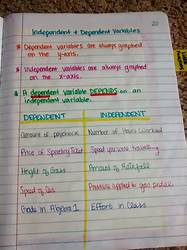 Independent + Dependent Variables
Dependent variables are always graphed
on the y-axis.
Independent variables are always graphed
on the x-axis.
A dependent variable DEPENDS on an
independent variable.
DEPENDENT INDEPENDENT
Amount of paycheck Number of Hours Worked
Price of Speeding Ticket Speed you were traveling
Height of Grass Amount of Rainfall
Speed of Car Pressure applied to gas pedal
Grade in Algebra 1 Effort in Class